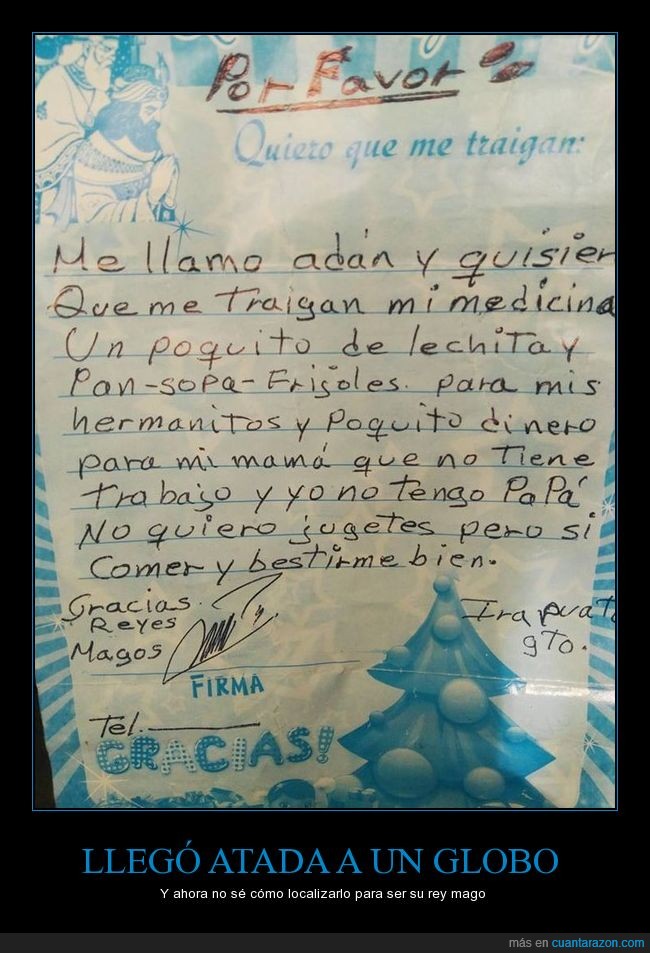 Por Favor
Quiero que me traigan:
Me llamo adán y quisier
Que me Traigan mi medicina
Un poquito de lechita y
Pan-sopa-Frijoles. para mis
hermanitos y Poquito dinero
para mi mamá que no Tiene
Trabajo y yo no Tengo PaPá
No quiero jugetes pero si
Comer y bestirme bien.
Gracias.
Reyes
Magos
Irapuat
gTo.
FIRMA
Tel.
GRACIAS!
LLEGÓ ATADA A UN GLOBO
Y ahora no sé cómo localizarlo para ser su rey mago
más en cuantarazon.com